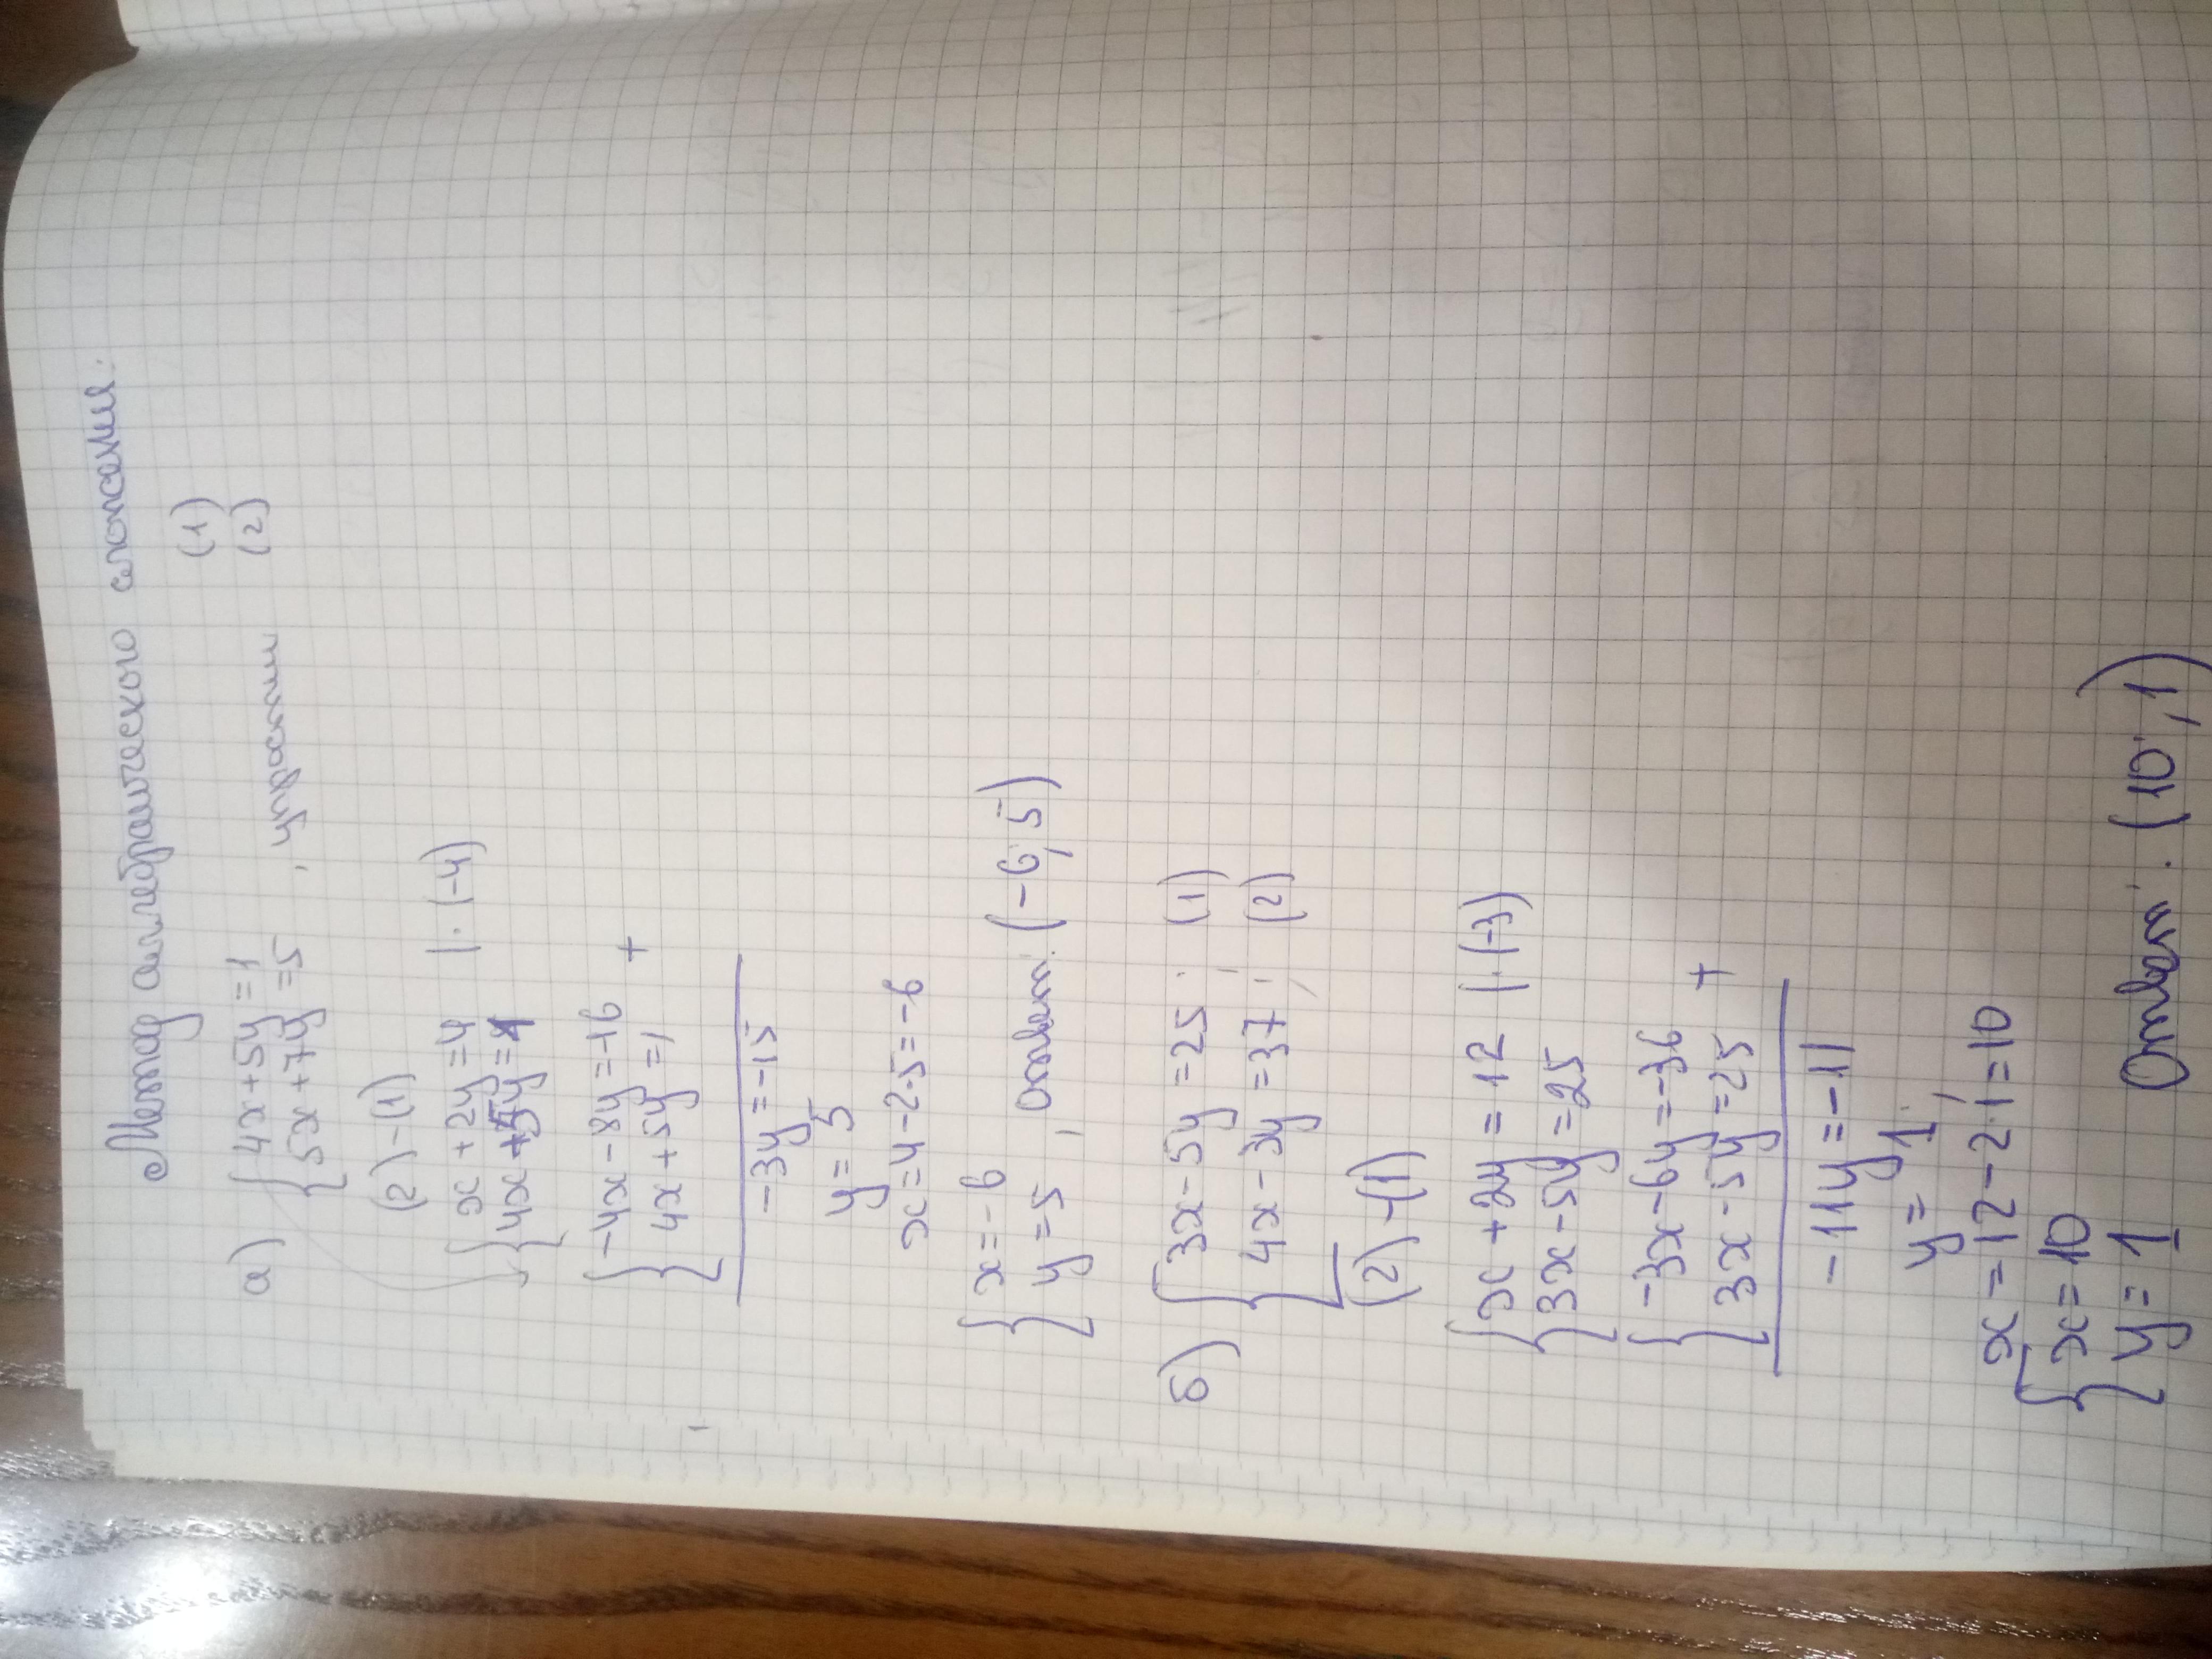 Метод алгебраического сложени.
а) { 4x+5y=1 (1)
5x+7y=5 , упрости (2)
(2)-(1)
{ x+2y=4 |·(-4)
4x+5y=1
{ -4x-8y=-16
4x+5y=1 +
-3y=-15
y=5
x=4-2·5=-6
{ x=-6
y=5 , ответ: (-6;5)
б) { 3x-5y=25 (1)
4x-3y=37 ; (2)
(2)-(1)
{ x+2y=12 |·(-3)
3x-5y=25
{ -3x-6y=-36
3x-5y=25 +
-11y=-11
y=1
x=12-2·1=10
{ x=10
y=1 Ответ: (10;1)